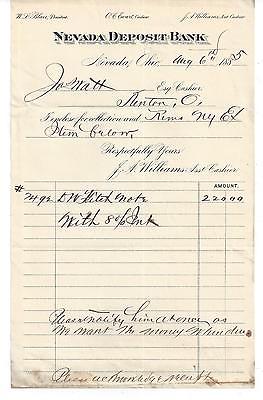 W. L. Blair, President. O. C. Cuart, Cashier J. A. Williams, Asst Cashier
NEVADA DEPOSIT BANK
Nevada, Ohio, Aug 6th 1885
Jas Watt
Esq Cashier
Kenton, O.
I enclose for collection and Rems NY Ex
Item below
Respectfully Yours
J. A. Williams Asst Cashier
AMOUNT.
# 7492 D W Fitch note 220 00
With 8% Int
Please notify him at once as
we want the money when due
Please acknowledge receipt